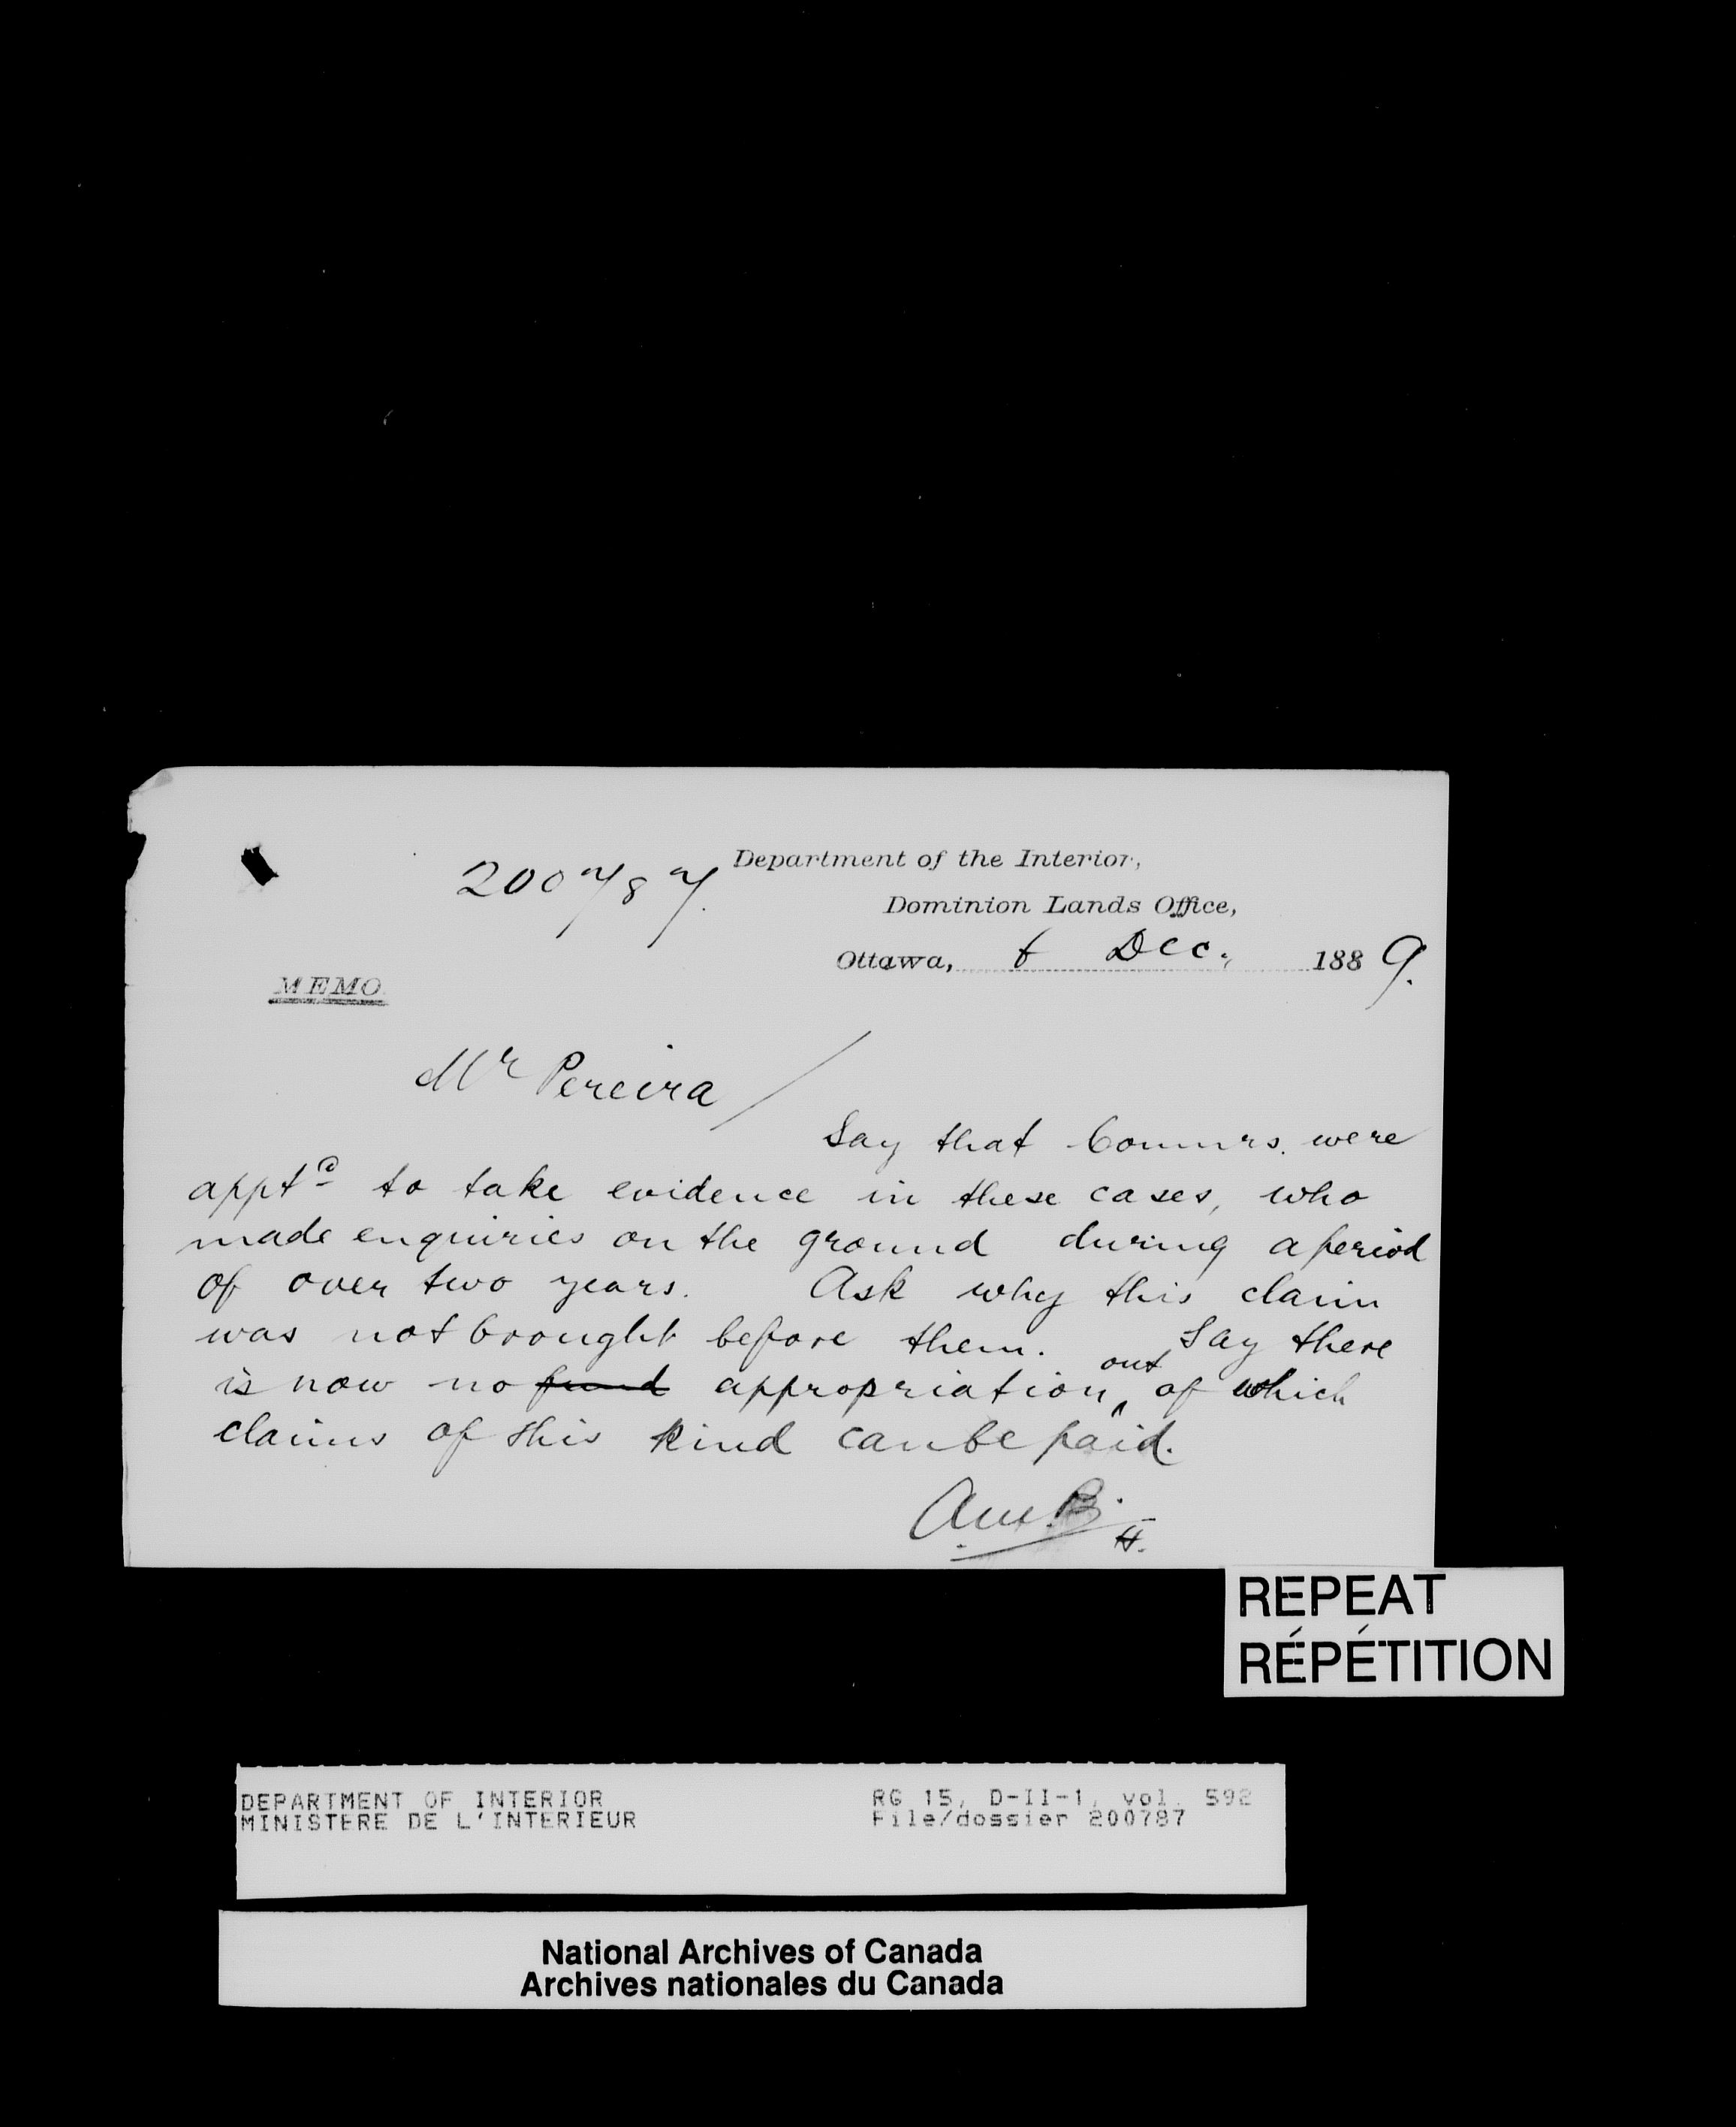 200787.
Department of the Interior,
Dominion Lands Office,
Ottawa, 6 Dec. 1889.
MEMO
Mr Pereira /
Say that Commrs. were
apptd to take evidence in these cases, who
made enquiries on the ground during a period
of over two years. Ask why this claim
was not brought before them. Say there
is now no fund appropriation out of which
claims of this kind can be paid.
A.M.B.
H.
REPEAT
RÉPÉTITION
DEPARTMENT OF INTERIOR RG 15, D-II-1, vol. 592
MINISTERE DE L'INTERIEUR File/dossier 200787
National Archives of Canada
Archives nationales du Canada